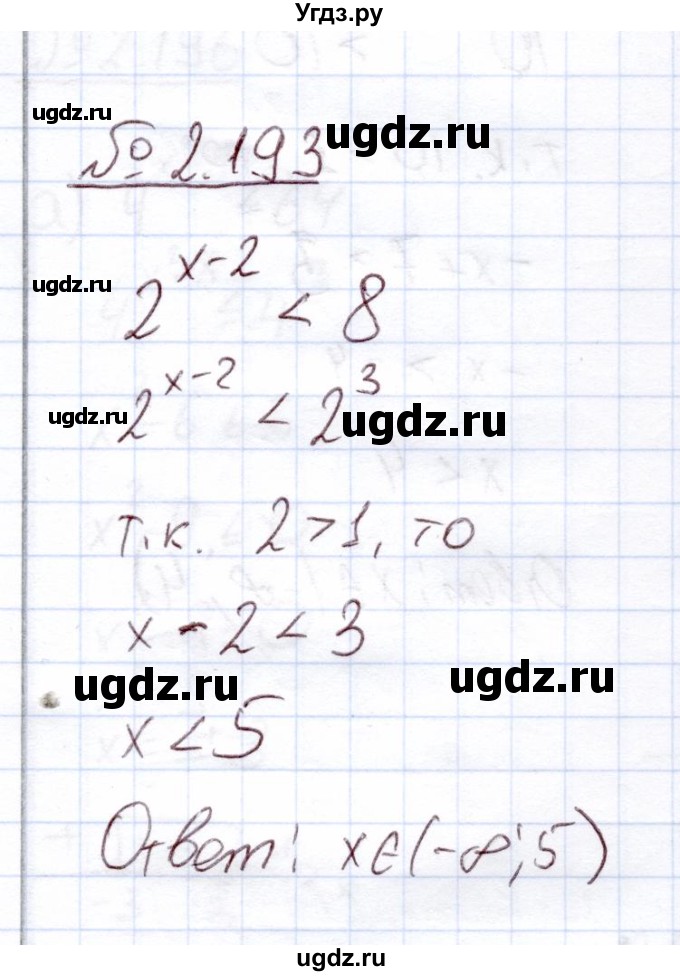 Угдз.ру
ugdz.ru
ugdz.ru
№ 2.193
ugdz.ru
2^{x-2} < 8
ugdz.ru
2^{x-2} < 2^3
ugdz.ru
т.к. 2 > 1, то
x - 2 < 3
ugdz.ru
ugdz.ru
x < 5
Ответ: x ∈ (-∞; 5)
ugdz.ru